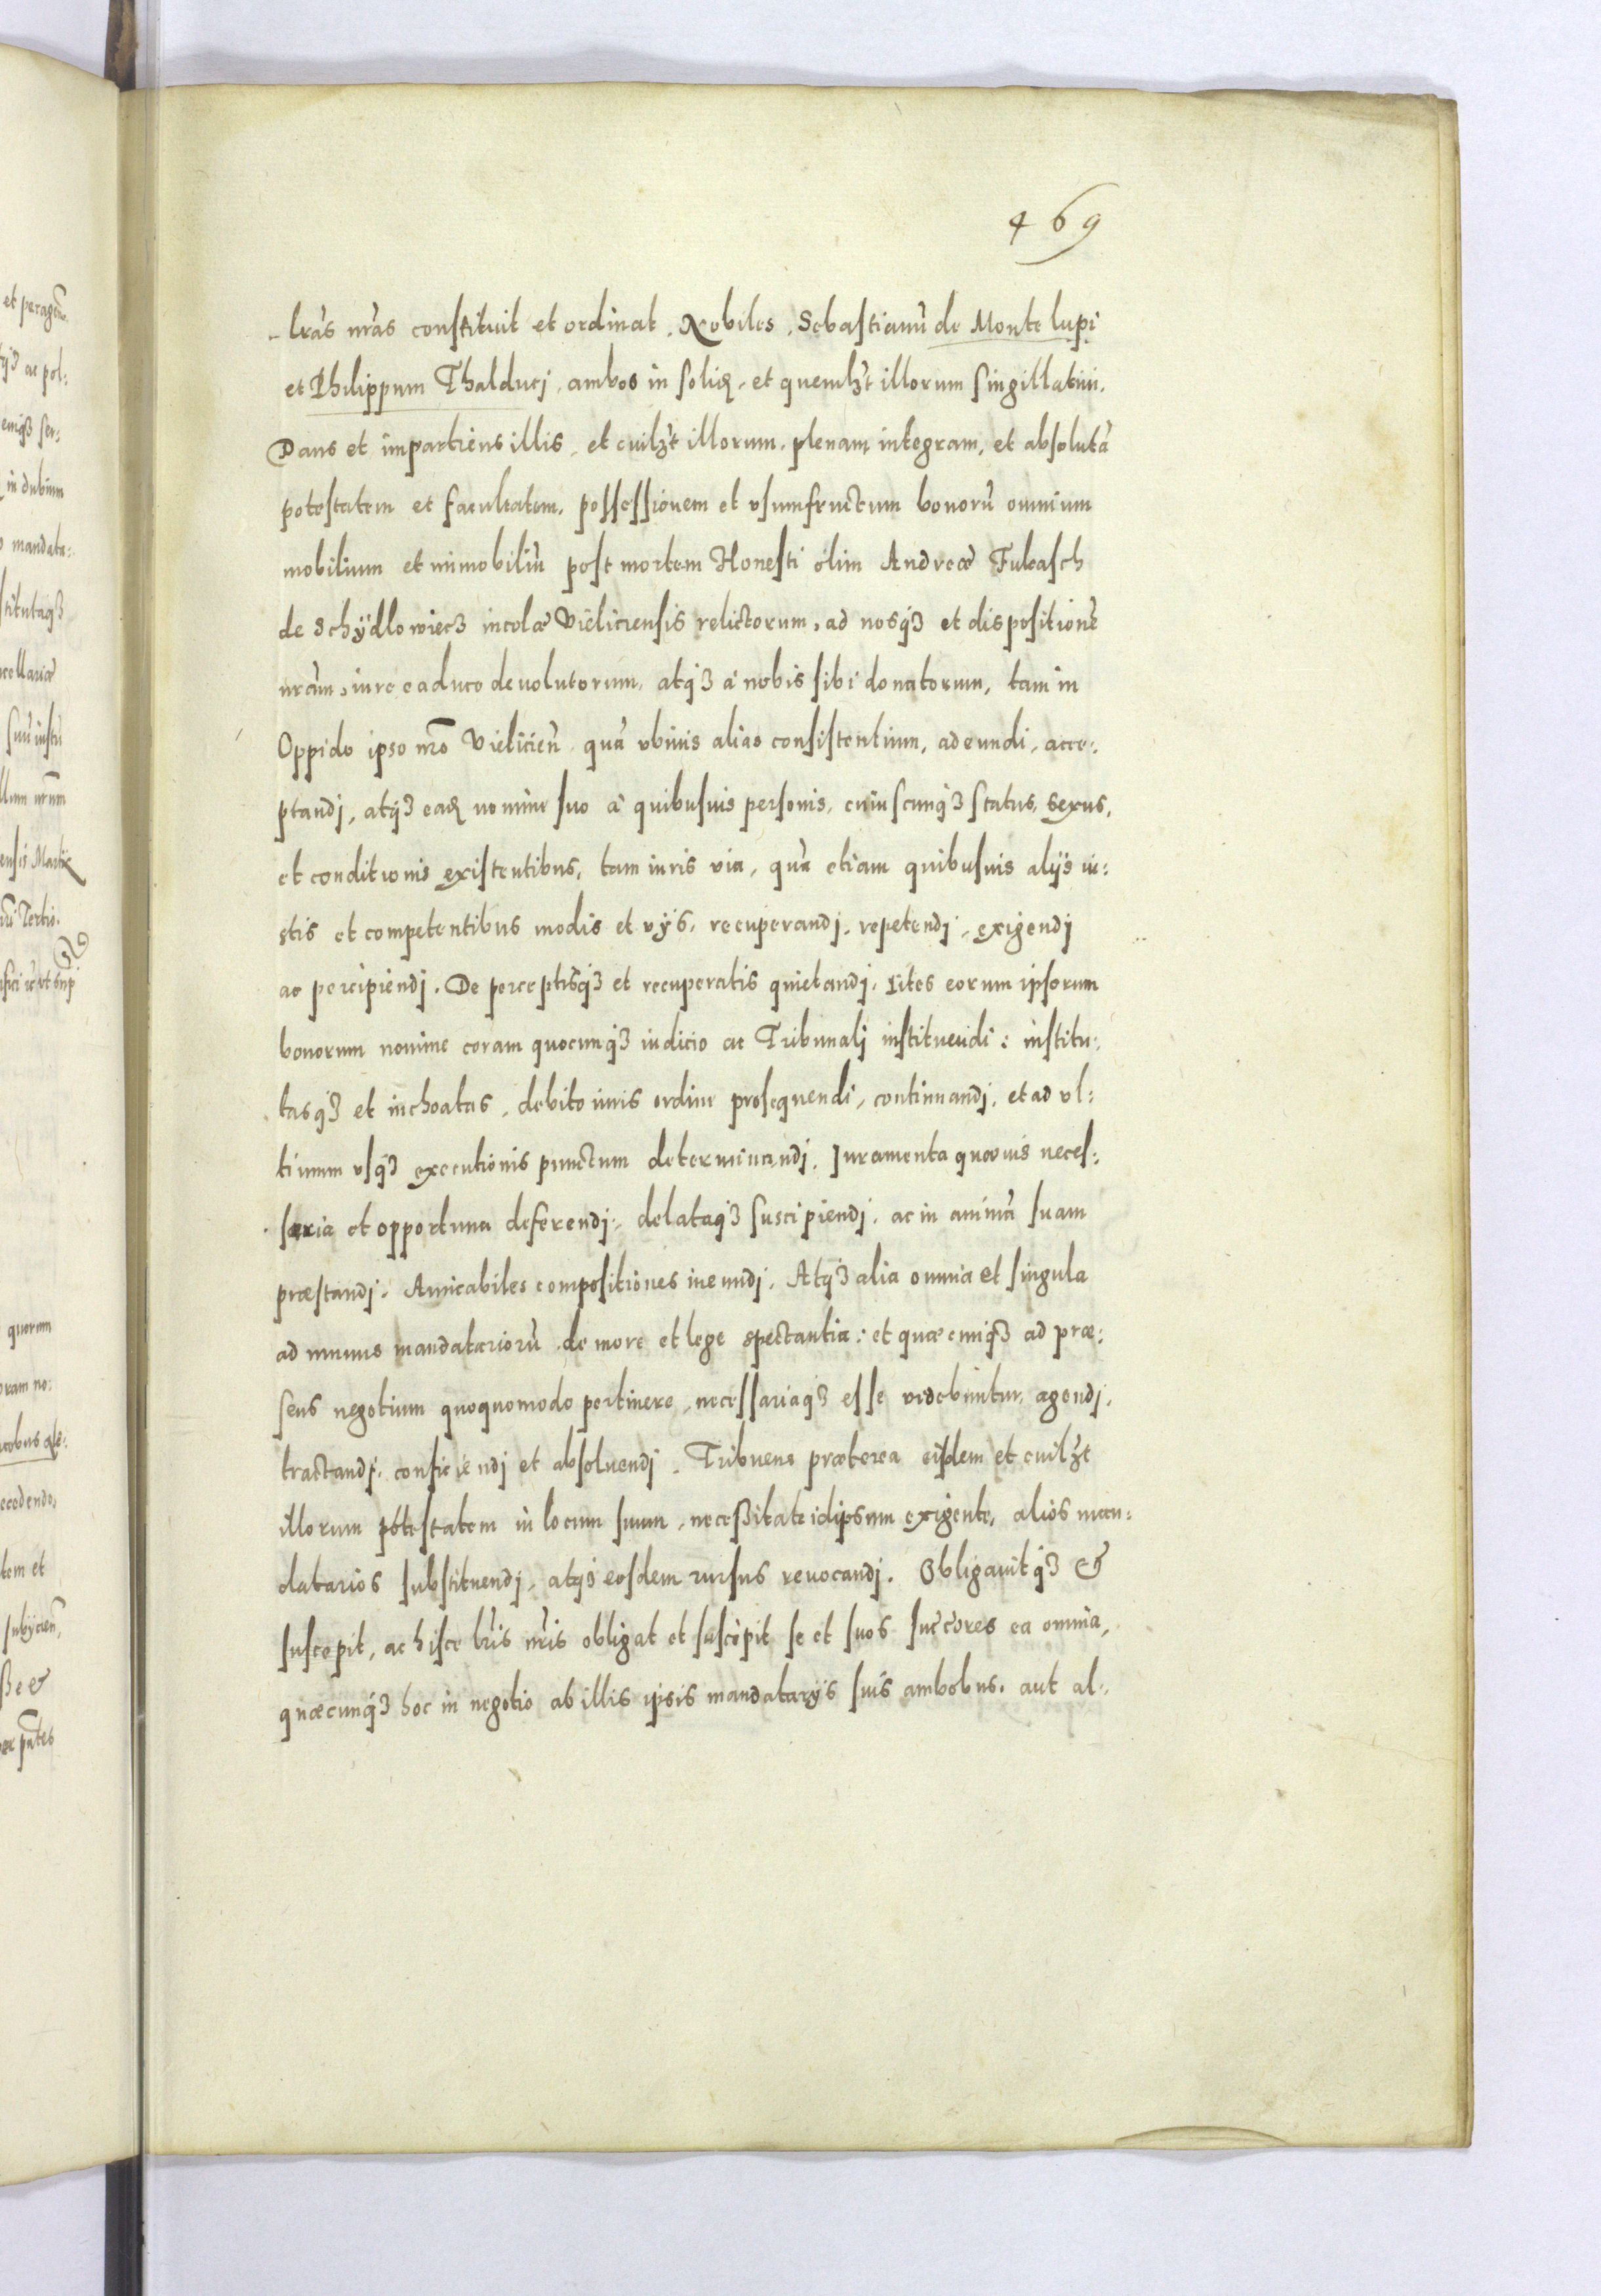 469
lr̃as nr̃as constituit et ordinat, Nobiles, Sebastianũ de Monte lupi
et Philippum Thalducj, ambos in solid. et quemlꝫt illorum singillatim.
Dans et impartiens illis, et cuilꝫt illorum, plenam, integram, et absolutã
potestatem et facultatem, possessionem et vsumfructum bonorũ omnium
mobilium et immobiliũ post mortem Honesti olim Andreæ Fukasch
de Schÿdlowiecz incolæ Vieliciensis relictorum, ad nosqꝫ et dispositionẽ
nr̃am, iure caduco deuolutorum, atqꝫ à nobis sibi donatorum, tam in
Oppido ipso nr̃o Vielicien̄, quã vbiuis alias consistentium, adeundi, acce:
ptandj, atqꝫ ead. nomine suo à quibusuis personis, cuiuscunqꝫ status, sexus,
et conditionis existentibus, tam iuris via, quã etiam quibusuis alijs iu:
stis et competentibus modis et vijs, recuperandj, repetendj, exigendj
ac percipiendj. De perceptisqꝫ et recuperatis quietandj, Lites eorum ipsorum
bonorum nomine coram quocunqꝫ iudicio ac Tribunalj instituendi: institu:
tasqꝫ et inchoatas, debito iuris ordine prosequendi, continuandj, et ad vl:
timum vsqꝫ executionis punctum determinandj. Juramenta quæuis neces:
saria et opportuna deferendj, delataqꝫ suscipiendj, ac in animã suam
præstandj. Amicabiles compositiones ineundj. Atqꝫ alia omnia et singula
ad munus mandatariorũ de more et lege spectantia: et quæcunqꝫ ad præ:
sens negotium quoquomodo pertinere, necessariaqꝫ esse videbuntur, agendj,
tractandj, conficiendj et absoluendj. Tribuens præterea eisdem et cuilꝫt
illorum potestatem in locum suum, neceßitate idipsum exigente, alios man:
datarios substituendj, atqꝫ eosdem rursus reuocandj. Obligauitqꝫ &
suscepit, ac hisce lr̃is nr̃is obligat et suscipit se et suos succ̃ores ea omnia,
quæcunqꝫ hoc in negotio ab illis ipsis mandatarijs suis ambobus, aut al: